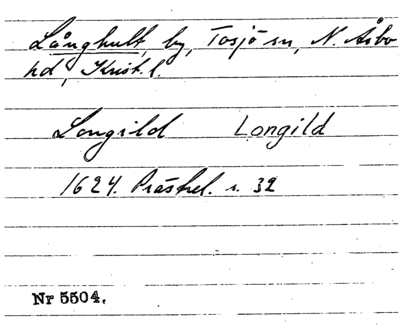 Långhult, by, Tosjö sn, N. Åsbo
hd, Krist. l.
Longild Longild
1624. Prästrel. s. 32
Nr 5504.